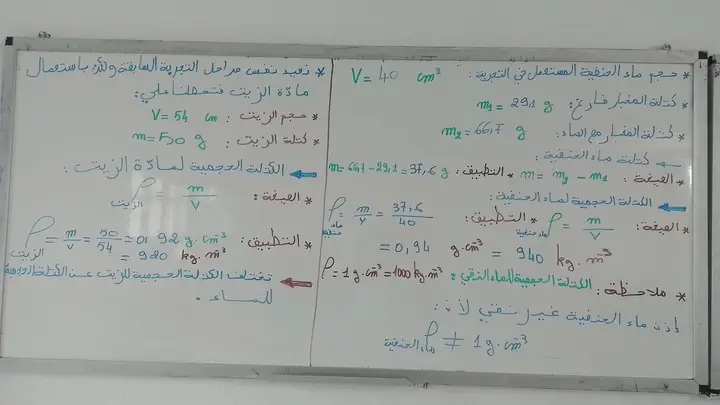 * حجم ماء الحنفية المستعمل في التجربة : V = 40 cm³
* كتلة المخبار فارغ : m₁ = 29,1 g
* كتلة المخبار مع الماء : m₂ = 66,7 g
← كتلة ماء الحنفية :
* الصيغة : m = m₂ - m₁ * التطبيق : m = 66,7 - 29,1 = 37,6 g
الكتلة الحجمية لماء الحنفية :
* الصيغة : ρ ماء حنفية = m/V * التطبيق : ρ ماء حنفية = m/V = 37,6/40
= 0,94 g.cm⁻³ = 940 kg.m⁻³
* ملاحظة : الكتلة الحجمية للماء النقي : ρ = 1 g.cm⁻³ = 1000 kg.m⁻³
إذن ماء الحنفية غير نقي لأن :
ρ ماء الحنفية ≠ 1 g.cm⁻³
* نعيد نفس مراحل التجربة السابقة ولكن باستعمال
مادة الزيت فتحصلنا على :
* حجم الزيت : V = 54 cm
* كتلة الزيت : m = 50 g
الكتلة الحجمية لمادة الزيت :
* الصيغة : ρ الزيت = m/V
* التطبيق : ρ الزيت = m/V = 50/54 = 0,92 g.cm⁻³
= 920 kg.m⁻³
تختلف الكتلة الحجمية للزيت عن الكتلة الحجمية
للماء .